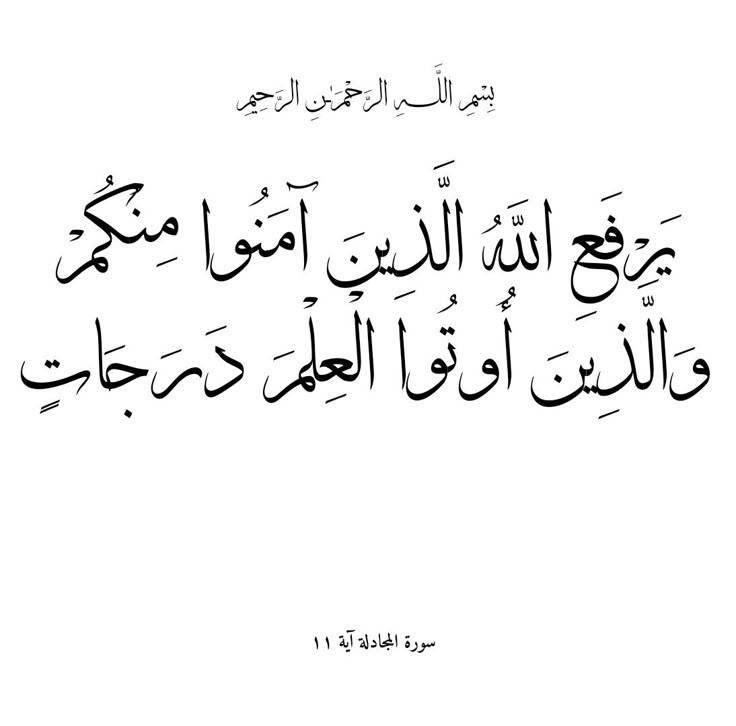 بِسْمِ اللَّـهِ الرَّحْمَـٰنِ الرَّحِيمِ
يَرْفَعِ اللَّهُ الَّذِينَ آمَنُوا مِنكُمْ
وَالَّذِينَ أُوتُوا الْعِلْمَ دَرَجَاتٍ
سورة المجادلة آية ١١